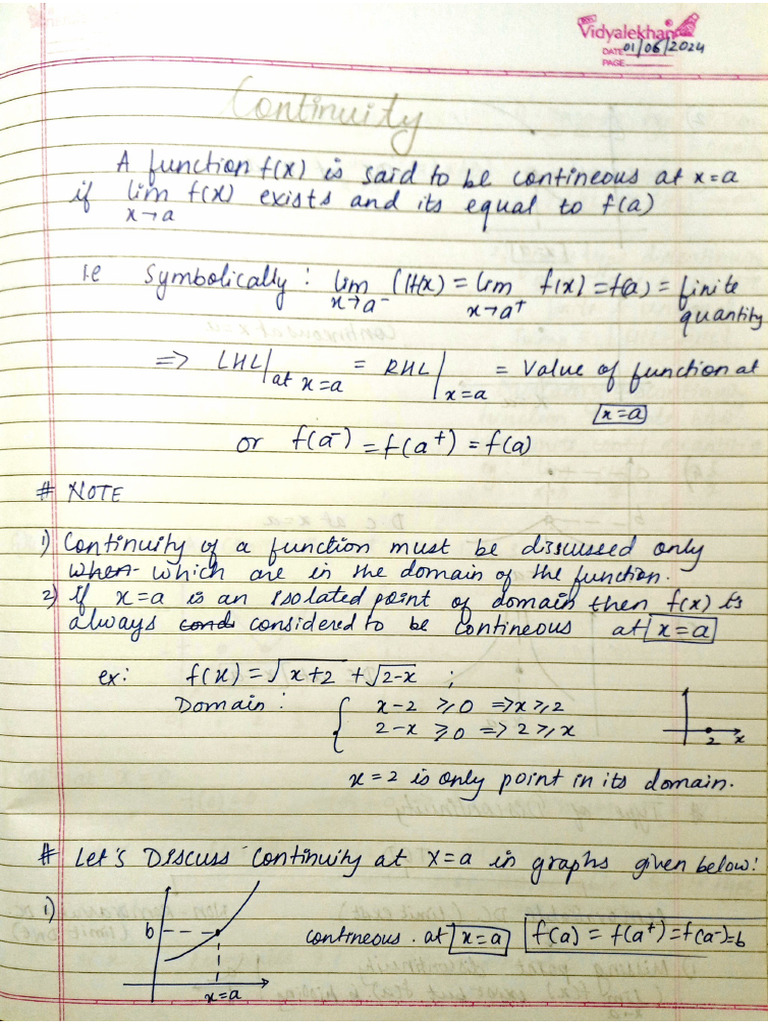 Vidyalekhan
DATE 01/06/2024
PAGE
Continuity
A function f(x) is said to be contineous at x=a
if lim f(x) exists and its equal to f(a)
x→a
i.e Symbolically : lim f(x) = lim f(x) = f(a) = finite
x→a⁻ x→a⁺ quantity
=> LHL| at x=a = RHL| x=a = Value of function at
x=a
or f(a⁻) = f(a⁺) = f(a)
# NOTE
1) Continuity of a function must be discussed only
when which are in the domain of the function.
2) If x=a is an isolated point of domain then f(x) is
always considered to be contineous at x=a
ex: f(x) = √x+2 + √2-x ;
Domain : { x-2 ⩾ 0 => x ⩾ 2
2-x ⩾ 0 => 2 ⩾ x
2 x
x=2 is only point in its domain.
# Let's Discuss Continuity at x=a in graphs given below:
1)
b contineous . at x=a f(a) = f(a⁺) = f(a⁻) = b
x=a